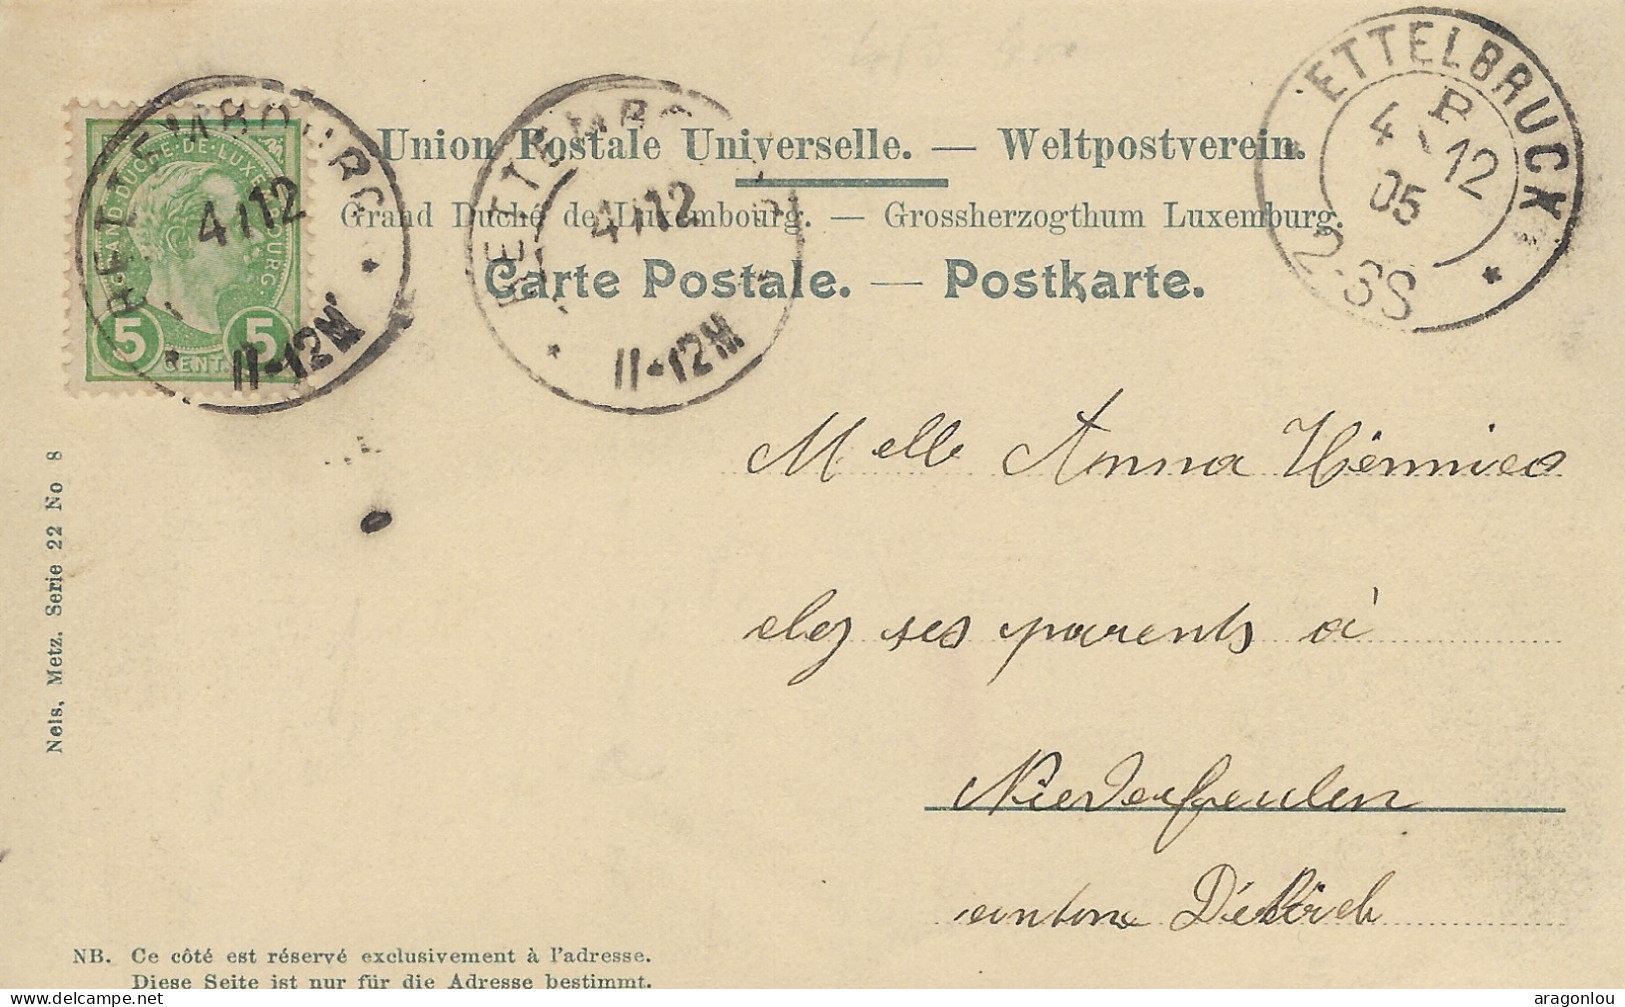 Union Postale Universelle. — Weltpostverein.
Grand Duché de Luxembourg. — Grossherzogthum Luxemburg.
Carte Postale. — Postkarte.
GRAND-DUCHÉ-DE-LUXEMBOURG
5 5
CENT.
BETTEMBOURG
4 12
11-12M
BETTEMBO
4 12
11-12M
ETTELBRUCK
4 12
05
2-3S
Melle Anna Hennico
chez ses parents à
Niederfeulen
canton Dekirch
Nels, Metz. Serie 22 No 8
NB. Ce côté est réservé exclusivement à l'adresse.
Diese Seite ist nur für die Adresse bestimmt.
delcampe.net
aragonlou